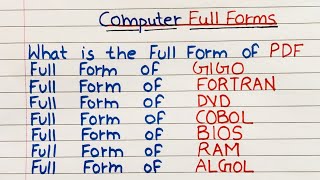 Computer Full Forms
What is the Full Form of PDF
Full Form of GIGO
Full Form of FORTRAN
Full Form of DVD
Full Form of COBOL
Full Form of BIOS
Full Form of RAM
Full Form of ALGOL